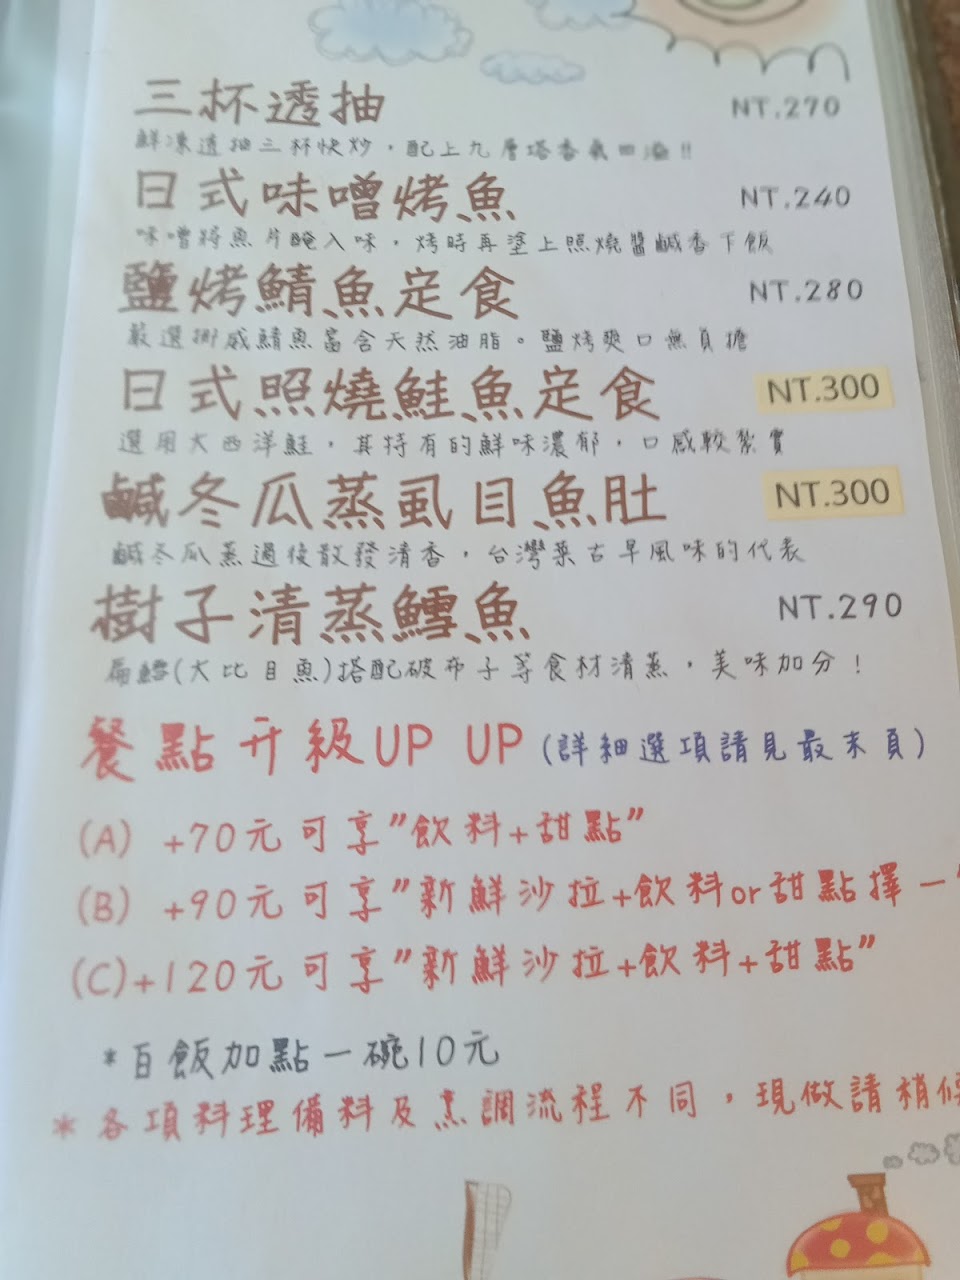 三杯透抽 NT.270
鮮凍透抽三杯快炒，配上九層塔香氣四溢!!
日式味噌烤魚 NT.240
味噌將魚片醃入味，烤時再塗上照燒醬鹹香下飯
鹽烤鯖魚定食 NT.280
嚴選挪威鯖魚富含天然油脂。鹽烤爽口無負擔
日式照燒鮭魚定食 NT.300
選用大西洋鮭，其特有的鮮味濃郁，口感較紮實
鹹冬瓜蒸虱目魚肚 NT.300
鹹冬瓜蒸過後散發清香，台灣菜古早風味的代表
樹子清蒸鱈魚 NT.290
扁鱈(大比目魚)搭配破布子等食材清蒸，美味加分！
餐點升級UP UP (詳細選項請見最末頁)
(A) +70元可享"飲料+甜點"
(B) +90元可享"新鮮沙拉+飲料or甜點擇一"
(C)+120元可享"新鮮沙拉+飲料+甜點"
*白飯加點一碗10元
*各項料理備料及烹調流程不同，現做請稍候